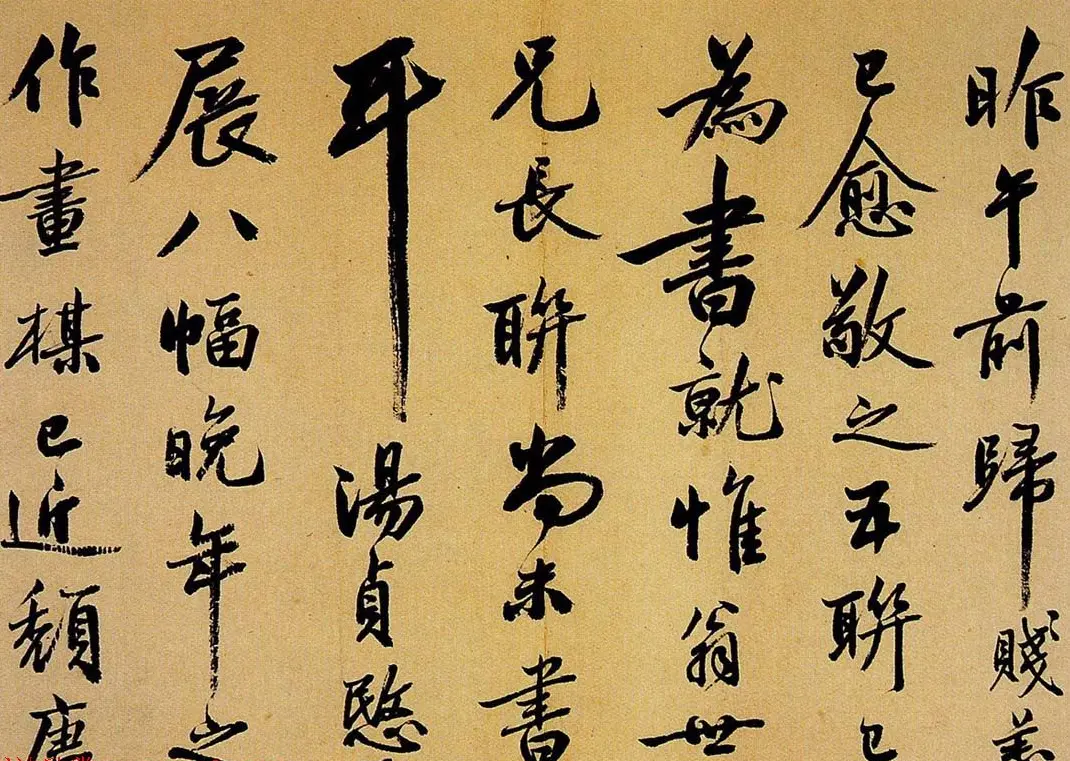 昨午前歸賤恙
已愈敬之五聯已
為書就惟翁世
兄長聯尚未書
耳湯貞愍
展八幅晚年之
作畫楳已近頹唐